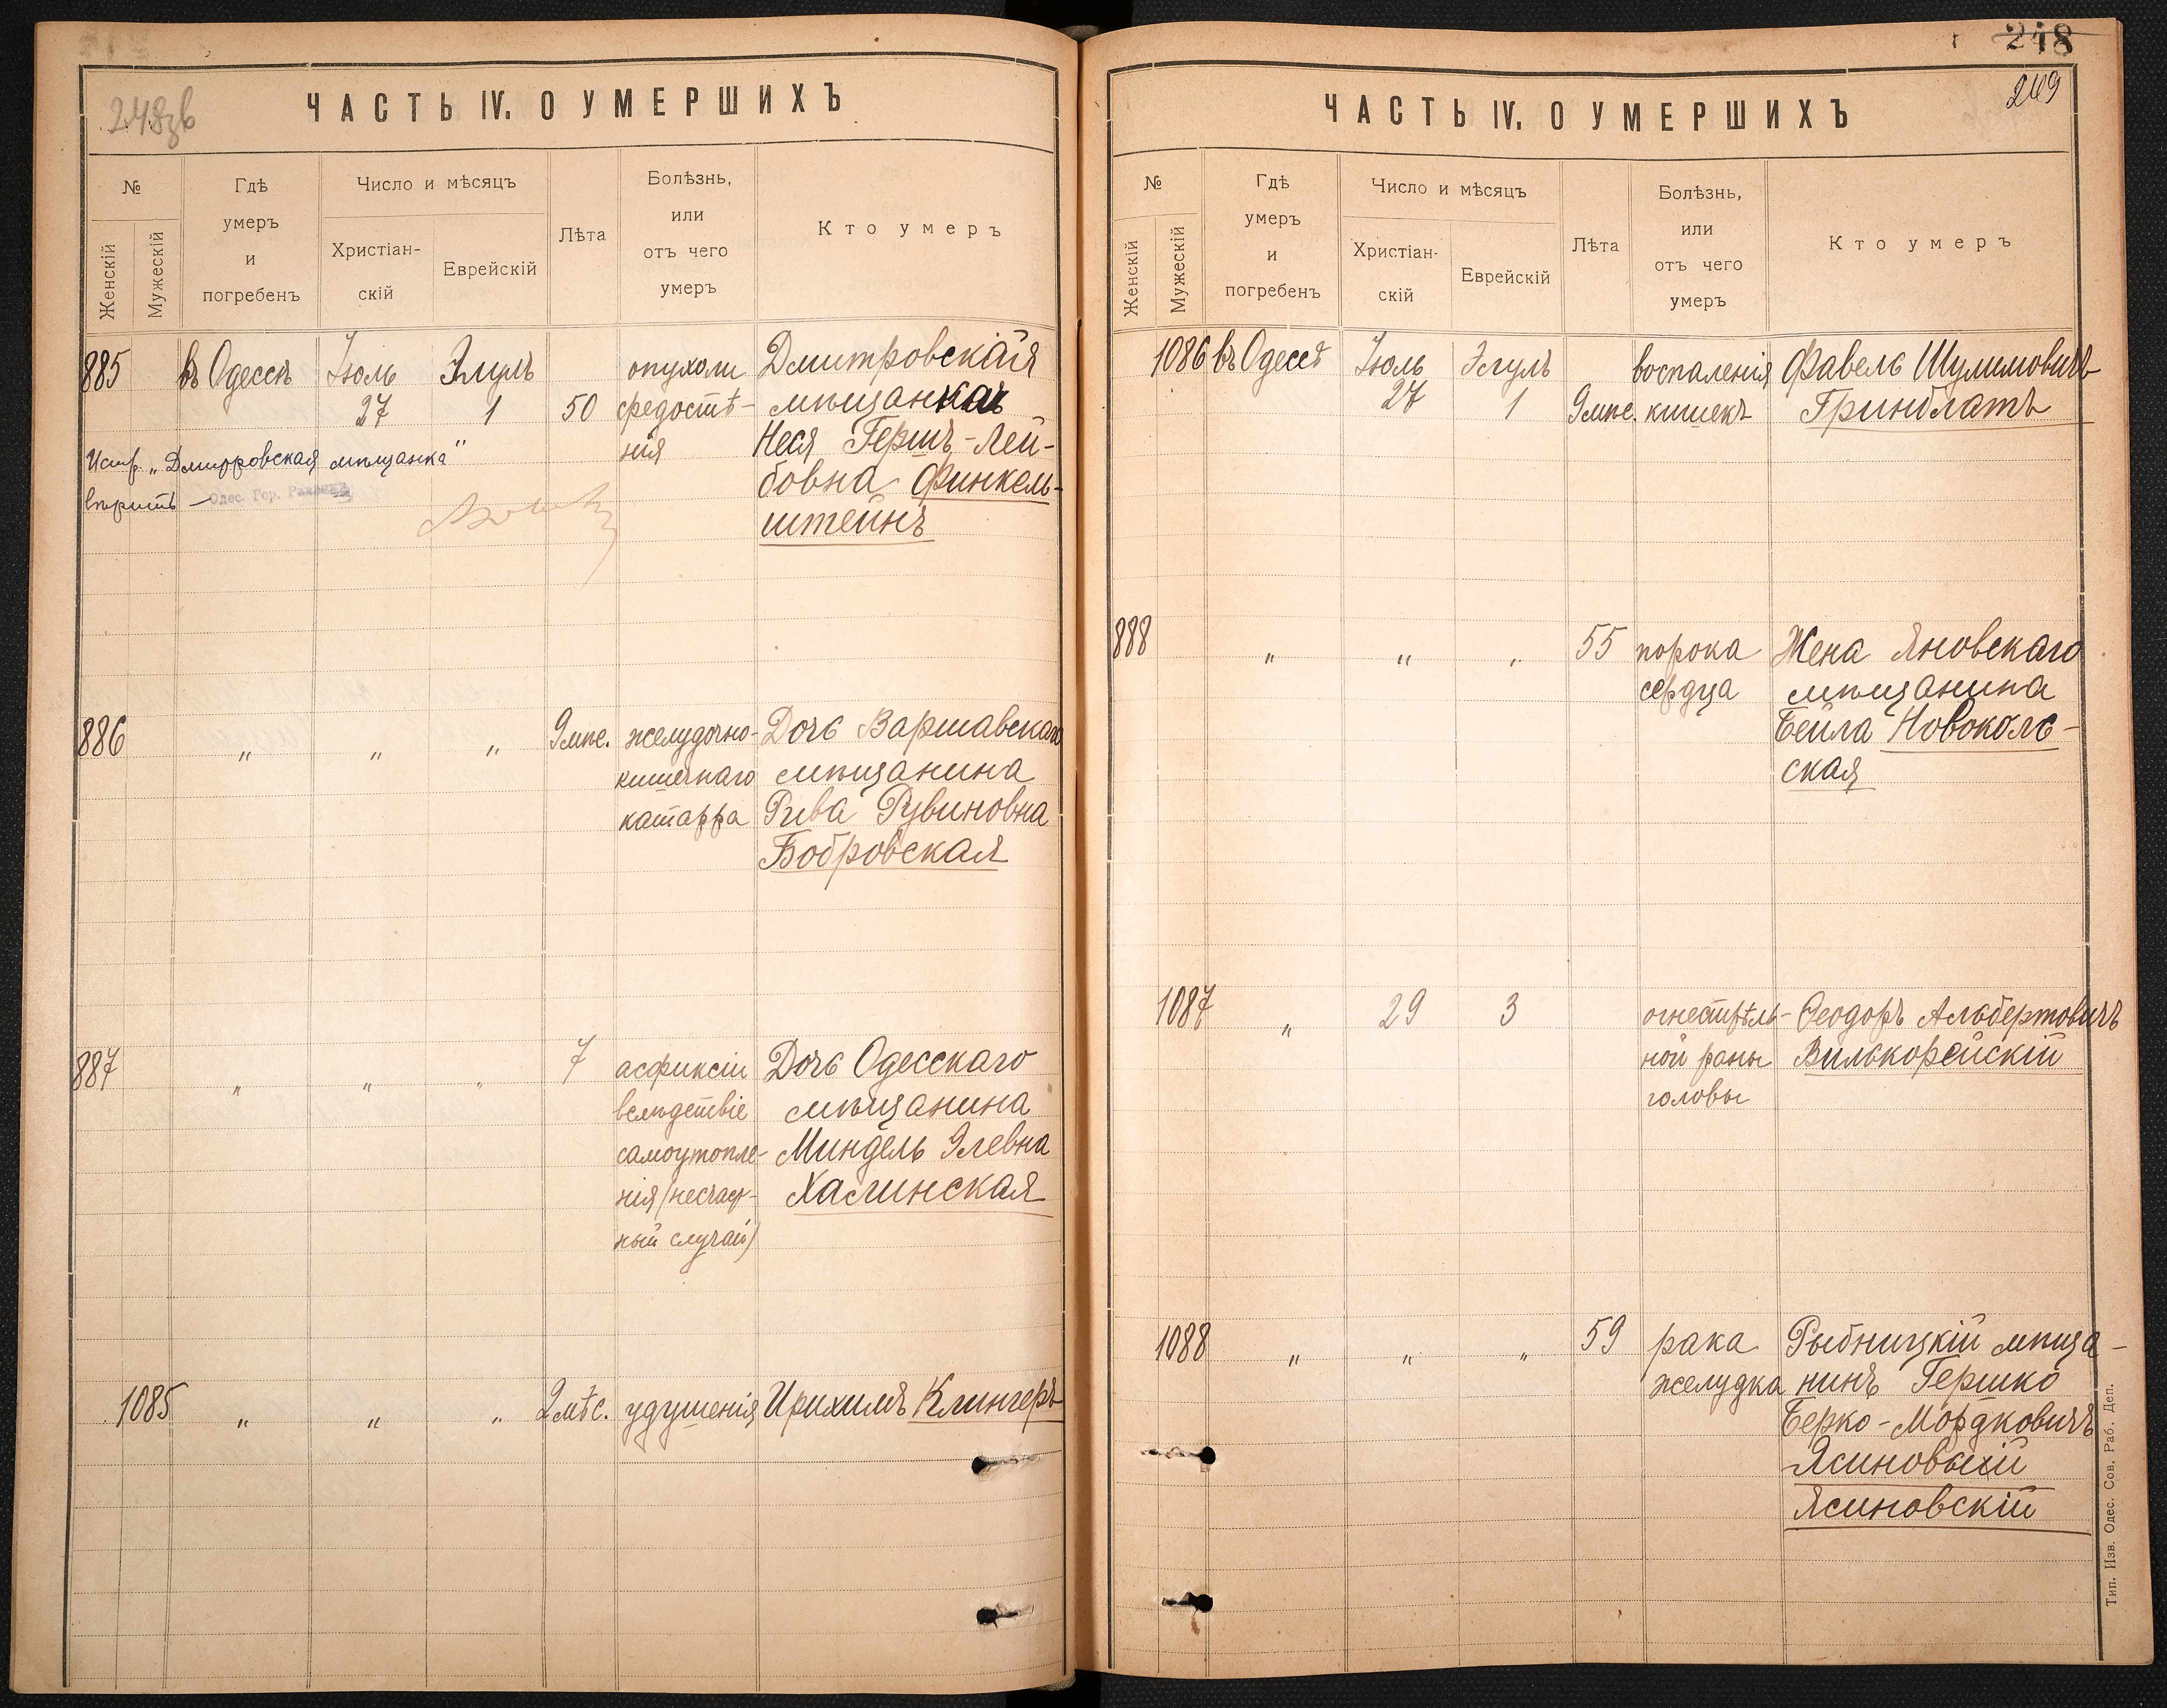 248зв
ЧАСТЬ IV. О УМЕРШИХЪ
№
Женскій
Мужескій
Гдѣ
умеръ
и
погребенъ
Число и мѣсяцъ
Христіан-
скій
Еврейскій
Лѣта
Болѣзнь,
или
отъ чего
умеръ
Кто умеръ
885 въ Одессѣ Іюль Элулъ опухоли Дмитровская
27 1 50 средостѣ- мѣщанка
нія Неся Гершъ-Лей-
бовна Финкель-
штейнъ
Испр. „Дмитровская мѣщанка"
вѣрить —
Одес. Гор.
886 „ „ „ 9 мѣс. желудочно- Дочь Варшавскаго
кишечнаго мѣщанина
катарра Рива Рувиновна
Бобровская
887 „ „ „ 7 асфиксіи Дочь Одесскаго
вслѣдствіе мѣщанина
самоутопле- Миндель Элевна
нія (несчаст- Хасминская
ный случай)
1085 „ „ „ 2 мѣс. удушенія Ирихимъ Клингеръ
248
249
ЧАСТЬ IV. О УМЕРШИХЪ
№
Женскій
Мужескій
Гдѣ
умеръ
и
погребенъ
Число и мѣсяцъ
Христіан-
скій
Еврейскій
Лѣта
Болѣзнь,
или
отъ чего
умеръ
Кто умеръ
1086 въ Одессѣ Іюль Элулъ воспаленія Фавель Шулимовичъ
27 1 9 мѣс. кишекъ Гринблатъ
888 „ „ „ 55 порока Жена Яновскаго
сердца мѣщанина
Бейла Новоколь-
ская
1087 „ 29 3 огнестрѣль- Ѳеодоръ Альбертовичъ
ной раны Вилькорейскій
головы
1088 „ „ „ 59 рака Рыбницкій мѣща-
желудка нинъ Гершко
Берко-Мордковичъ
Ясиновскій
Ясиновскій
Тип. Изв. Одес. Сов. Раб. Деп.